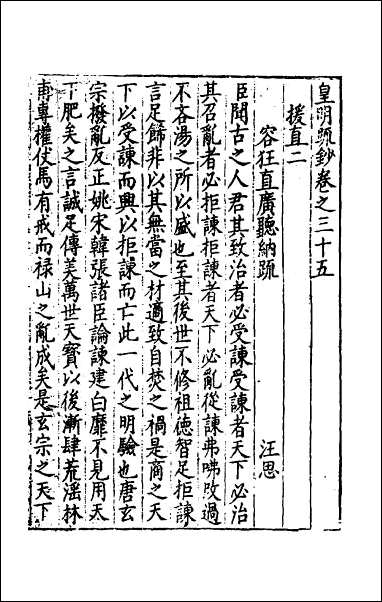 皇明疏鈔卷之三十五
援直二
容狂直廣聽納疏　汪思
臣聞古之人君其致治者必受諫受諫者天下必治
其召亂者必拒諫拒諫者天下必亂從諫弗咈改過
不吝湯之所以盛也至其後世不修祖德智足拒諫
言足飾非以其無當之材適致自焚之禍是商之天
下以受諫而興以拒諫而亡此一代之明驗也唐玄
宗撥亂反正姚宋韓張諸臣論諫建白靡不見用天
下肥矣之言誠足傳美萬世天寳以後漸肆荒滛林
甫專權仗馬有戒而禄山之亂成矣是玄宗之天下